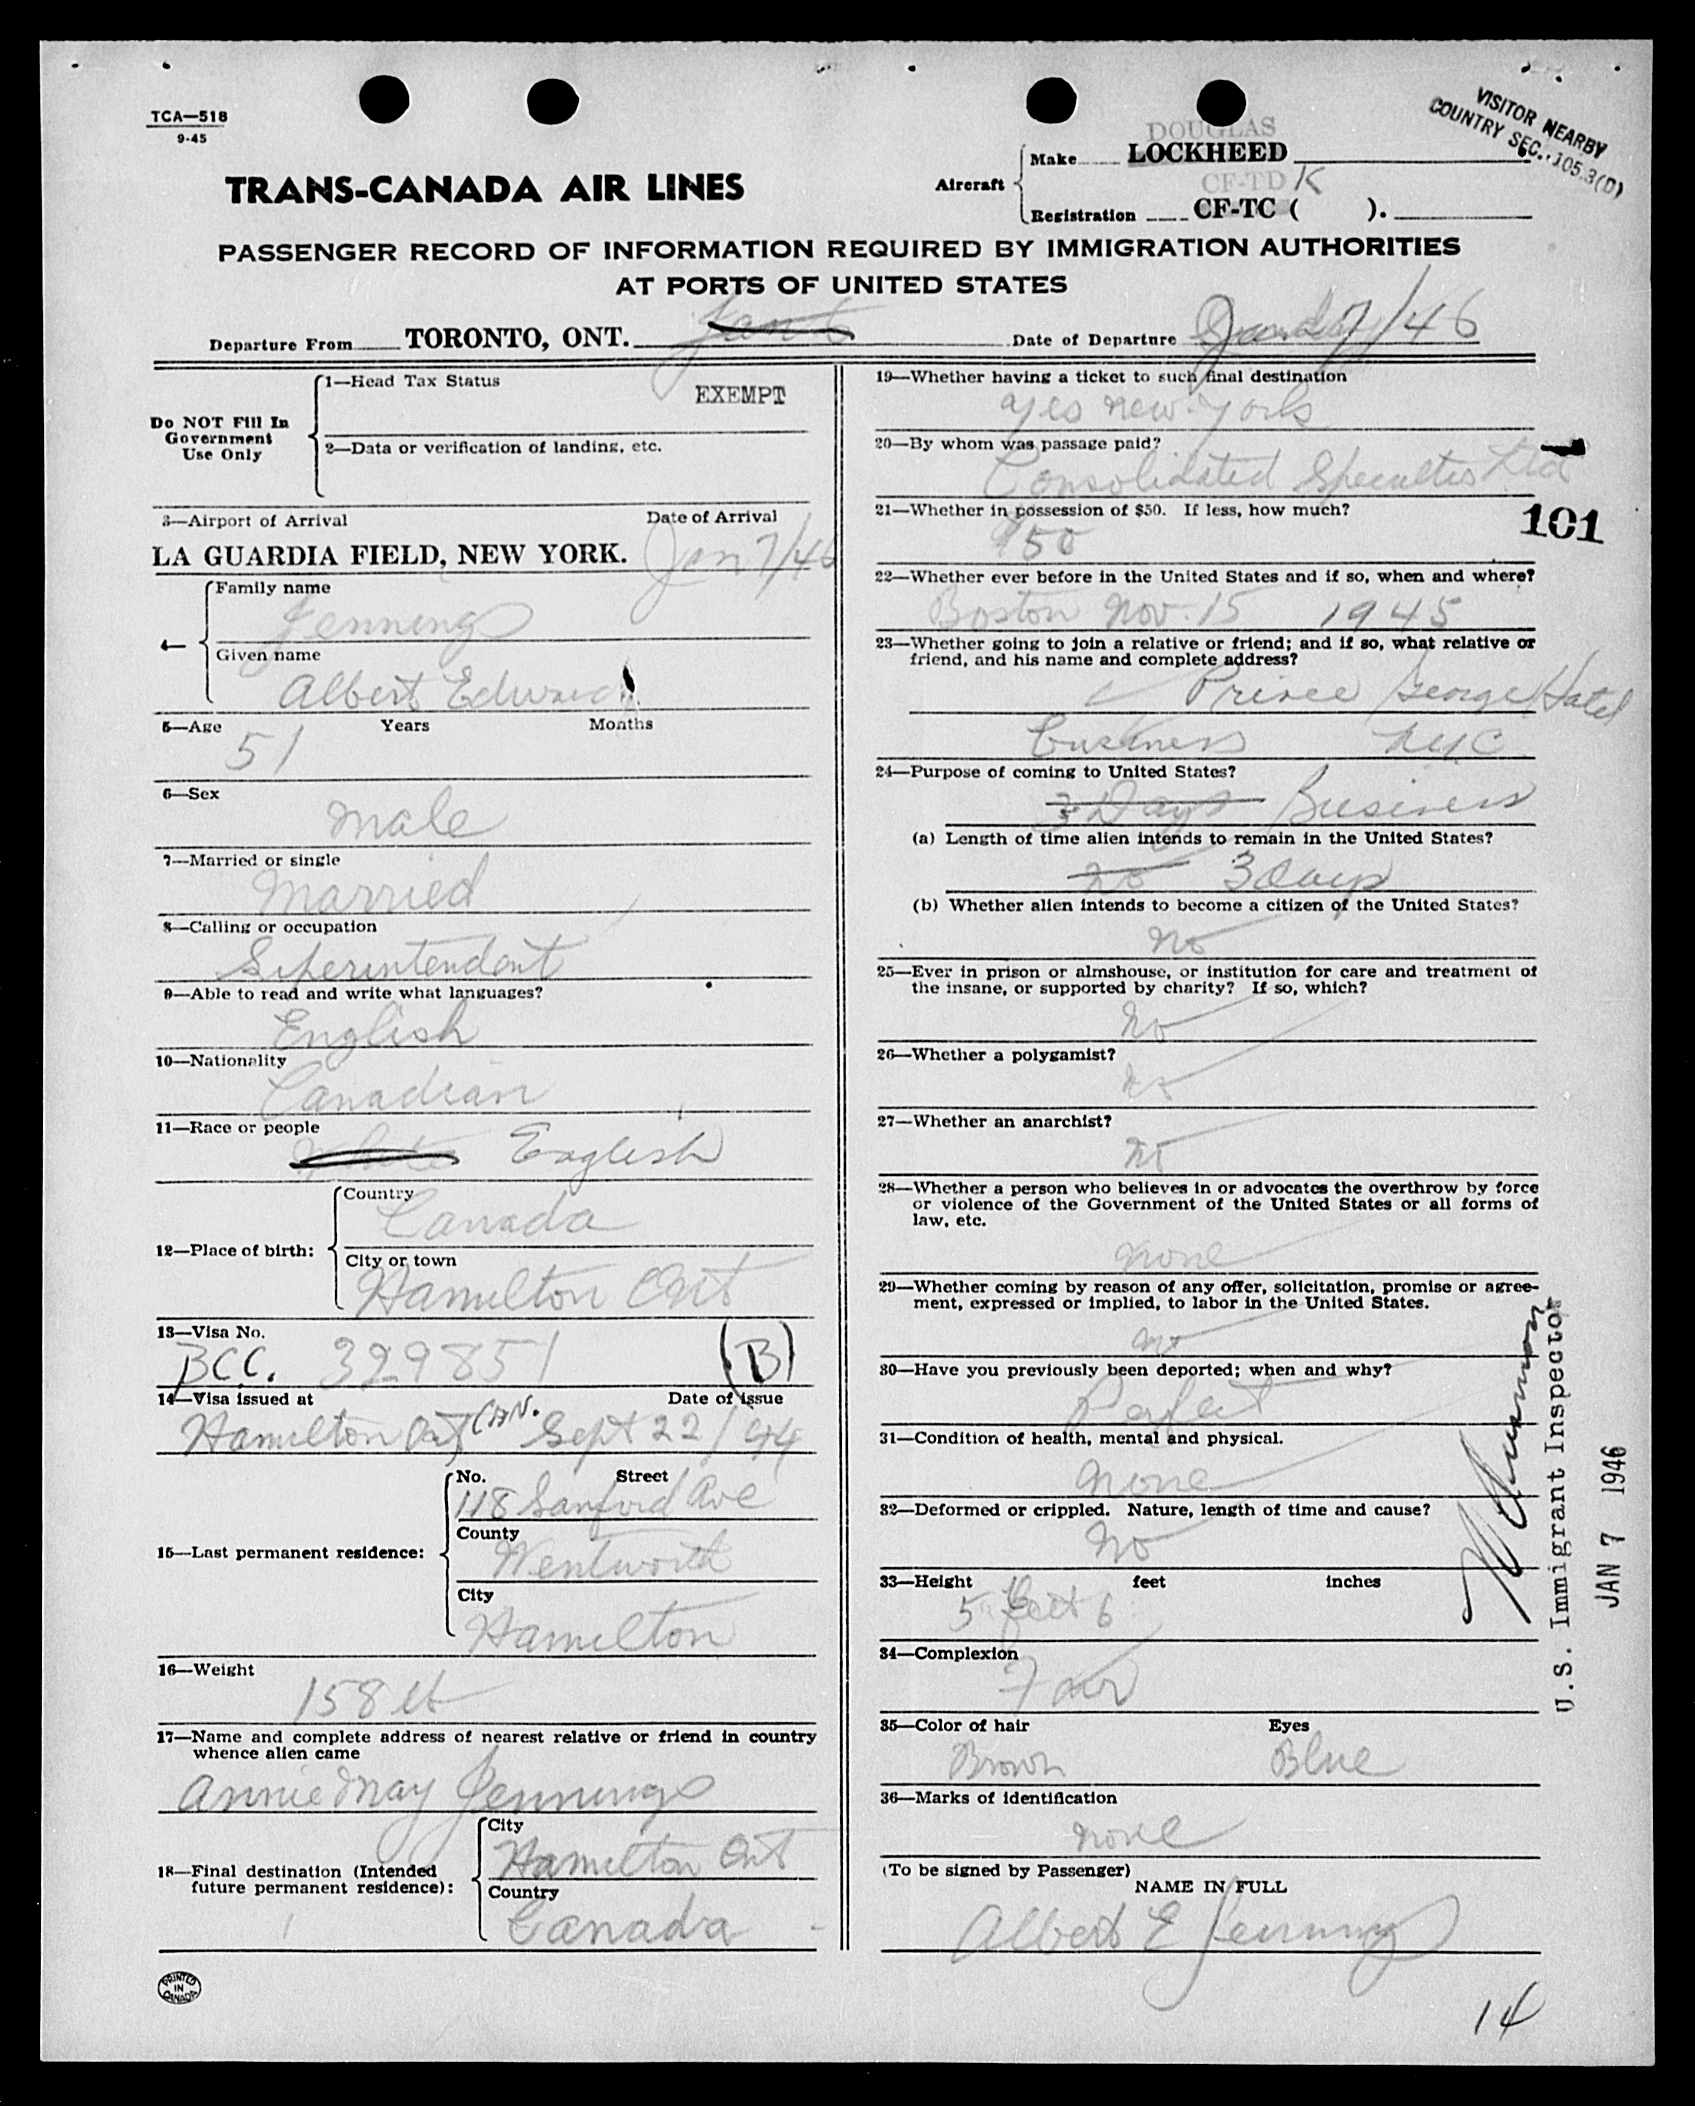 TCA—518
9-45
VISITOR NEARBY
COUNTRY SEC. 105.3(D)
TRANS-CANADA AIR LINES
DOUGLAS
Aircraft Make LOCKHEED
CF-TD K
Registration CF-TC ( ).
PASSENGER RECORD OF INFORMATION REQUIRED BY IMMIGRATION AUTHORITIES
AT PORTS OF UNITED STATES
Departure From TORONTO, ONT. Date of Departure Jan 7/46
Do NOT Fill In
Government
Use Only
1—Head Tax Status
EXEMPT
2—Data or verification of landing, etc.
3—Airport of Arrival Date of Arrival
LA GUARDIA FIELD, NEW YORK. Jan 7/46
4—
Family name
Jennings
Given name
Albert Edward
5—Age Years Months
51
6—Sex
Male
7—Married or single
Married
8—Calling or occupation
Siperintendant
9—Able to read and write what languages?
English
10—Nationality
Canadian
11—Race or people
White English
12—Place of birth:
Country
Canada
City or town
Hamilton Ont
13—Visa No.
BCC. 329851 (B)
14—Visa issued at Date of issue
Hamilton Ont CAN. Sept 22/44
15—Last permanent residence:
No. Street
118 Sanford Ave
County
Wentworth
City
Hamilton
16—Weight
158 lb
17—Name and complete address of nearest relative or friend in country
whence alien came
Annie May Jennings
18—Final destination (Intended
future permanent residence):
City
Hamilton Ont
Country
Canada
PRINTED
IN
CANADA
19—Whether having a ticket to such final destination
Yes New York
20—By whom was passage paid?
Consolidated Specialties Ltd
21—Whether in possession of $50. If less, how much?
$50
101
22—Whether ever before in the United States and if so, when and where?
Boston Nov. 15 1945
23—Whether going to join a relative or friend; and if so, what relative or
friend, and his name and complete address?
Prince George Hotel
Business NYC
24—Purpose of coming to United States?
3 Days Business
(a) Length of time alien intends to remain in the United States?
no 3 days
(b) Whether alien intends to become a citizen of the United States?
no
25—Ever in prison or almshouse, or institution for care and treatment of
the insane, or supported by charity? If so, which?
no
26—Whether a polygamist?
no
27—Whether an anarchist?
no
28—Whether a person who believes in or advocates the overthrow by force
or violence of the Government of the United States or all forms of
law, etc.
none
29—Whether coming by reason of any offer, solicitation, promise or agree-
ment, expressed or implied, to labor in the United States.
no
30—Have you previously been deported; when and why?
Perfect
31—Condition of health, mental and physical.
none
32—Deformed or crippled. Nature, length of time and cause?
No
33—Height feet inches
5 feet 6
34—Complexion
Fair
35—Color of hair Eyes
Brown Blue
36—Marks of identification
none
(To be signed by Passenger)
NAME IN FULL
Albert E Jennings
U.S. Immigrant Inspector
JAN 7 1946
14